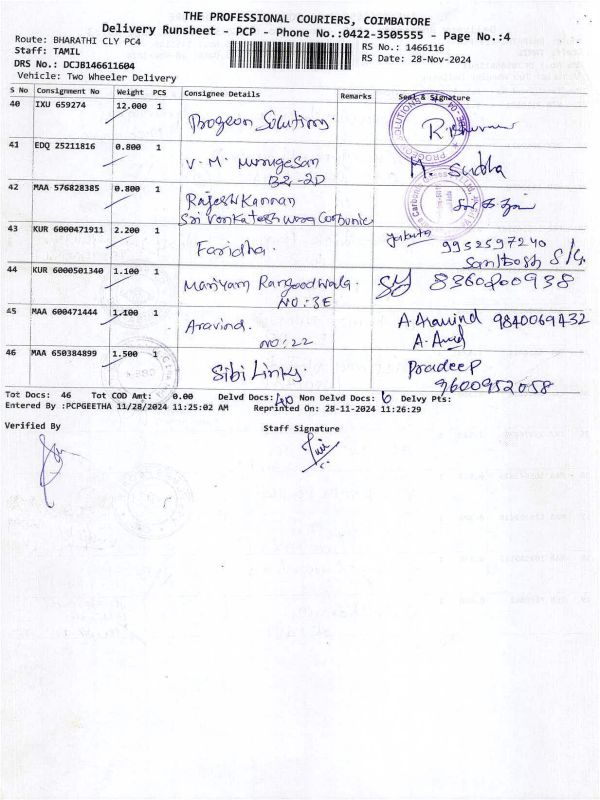 THE PROFESSIONAL COURIERS, COIMBATORE
Delivery Runsheet - PCP - Phone No.:0422-3505555 - Page No.:4
Route: BHARATHI CLY PC4
RS No.: 1466116
Staff: TAMIL
RS Date: 28-Nov-2024
DRS No.: DCJB146611604
Vehicle: Two Wheeler Delivery
S No Consignment No Weight PCS Consignee Details Remarks Seal & Signature
40 IXU 659274 12.000 1 Progeon Solutions.
41 EDQ 25211816 0.800 1 V. M. Murugesan M. Sudha
B2-2D
42 MAA 576828385 0.800 1 Rajesh Kannan
Sri Venkateshwara Carbonic
43 KUR 6000471911 2.200 1 Faridha. 9952597240
Santhosh S/G
44 KUR 6000501340 1.100 1 Mariyam Rangoodwala. 8360800938
NO: 3E
45 MAA 600471444 1.100 1 Aravind. A Aravind 9840069432
NO: 22
46 MAA 650384899 1.500 1 Sibi Links. Pradeep
9600952058
Tot Docs: 46 Tot COD Amt: 0.00 Delvd Docs: 40 Non Delvd Docs: 6 Delvy Pts:
Entered By :PCPGEETHA 11/28/2024 11:25:02 AM Reprinted On: 28-11-2024 11:26:29
Verified By Staff Signature